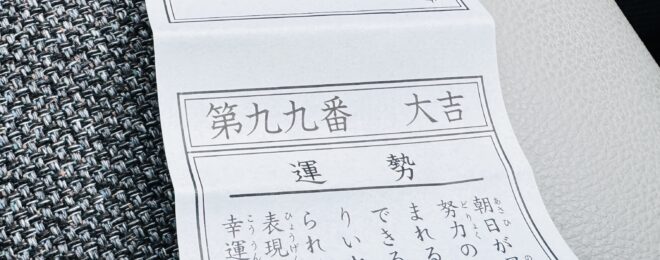 第九九番 大吉
運勢
朝日が
努力の
まれる
できる
りい
られ
表現
幸運